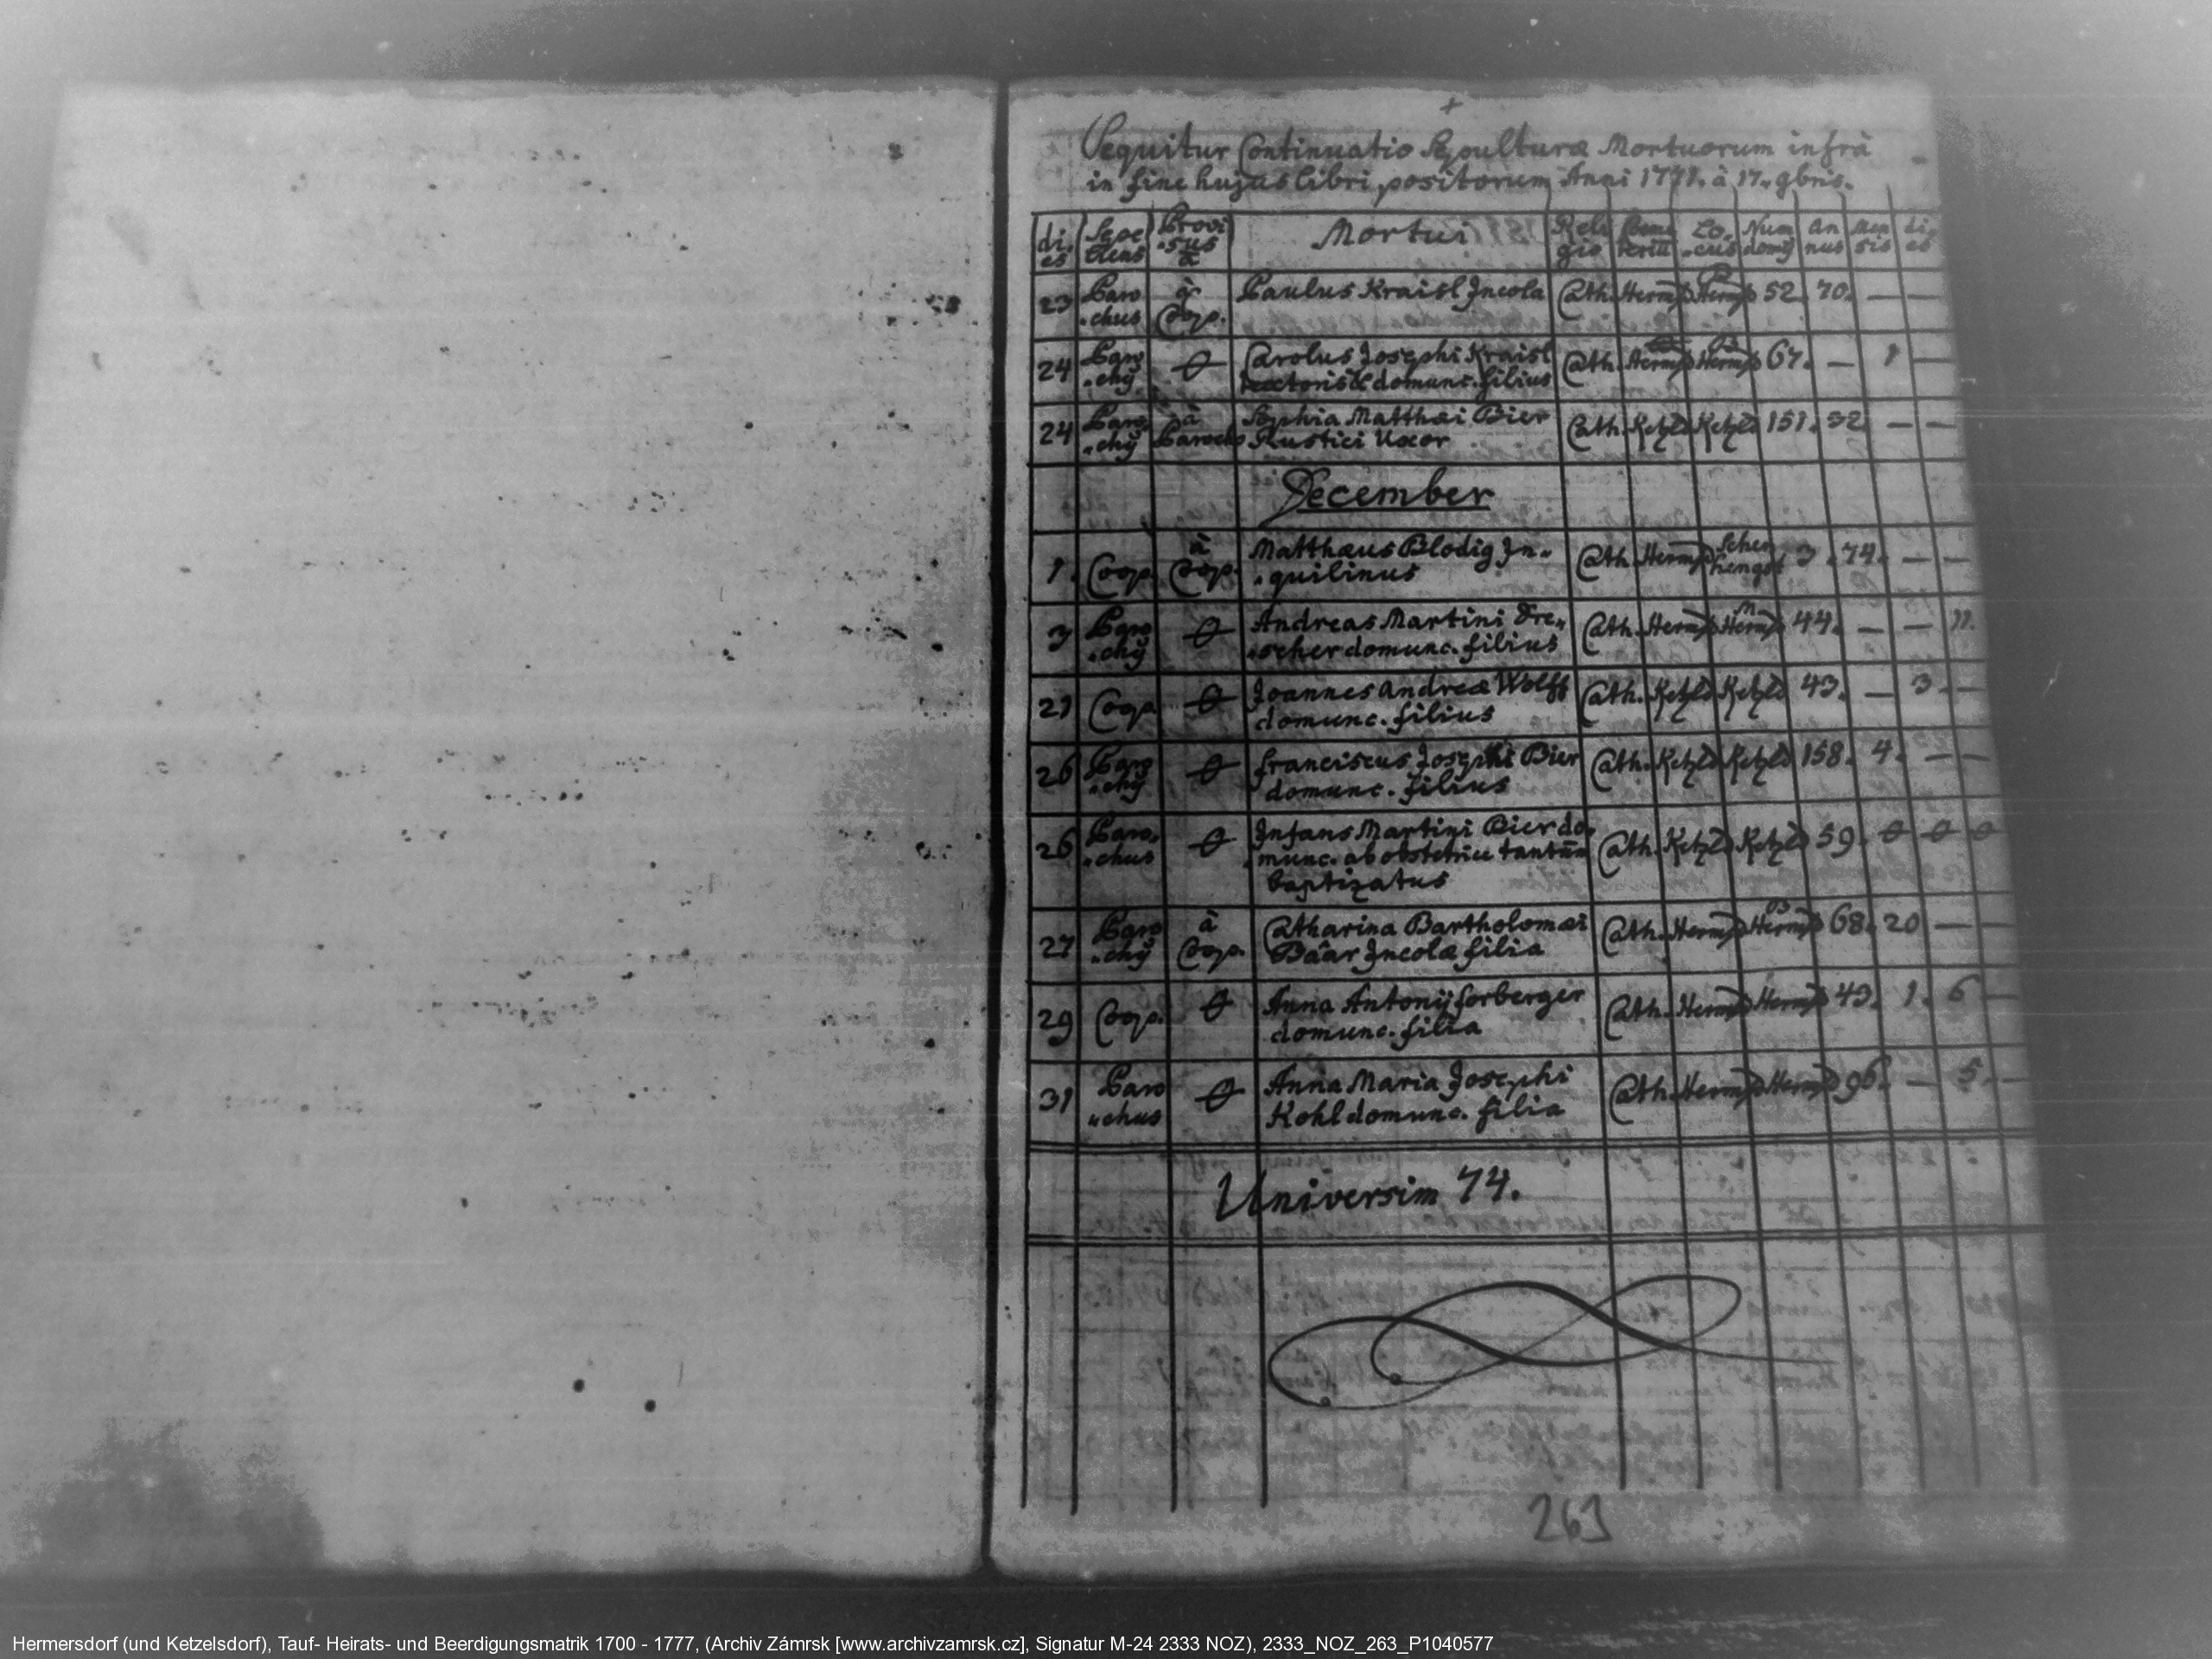 Sequitur Continuatio Sepulturæ Mortuorum infrà
in fine hujus libri positorum Anni 1771. à 17. 9bris.
di. es Sepe liens Provi sus à Mortui Reli gio Come teriu Lo. cus Num domÿ An nus Men sis di. es
23 Paro chus à Coop. Paulus Kraisl Incola Cath. Hermsd Hermsd 52. 70. — —
24 Paro chÿ O Carolus Josephi Kraisl
domunc. filius Cath. Hermsd Hermsd 67. — 1 —
24 Paro chÿ à Parocho Sophia Matthæi Bier
Rustici Uxor Cath. Ketzld Ketzld 151. 32. — —
December
1. Coop. à Coop. Matthæus Blodig In„
„quilinus Cath. Hermsd Schen hengst 3. 74. — —
3 Paro chÿ O Andreas Martini Dre„
„scher domunc. filius Cath. Hermsd Hermsd 44. — — 11.
21 Coop. O Joannes Andreæ Wolff
domunc. filius Cath. Ketzld Ketzld 43. — 3. —
26 Paro chÿ O Franciscus Josephi Bier
domunc. filius Cath. Ketzld Ketzld 158. 4. — —
26 Paro. chus O Infans Martini Bier do„
munc. ab obstetrice tantum
baptizatus Cath. Ketzld Ketzld 59. O O O
27 Paro chÿ à Coop. Catharina Bartholomæi
Bäar Incolæ filia Cath. Hermsd Hermsd 68. 20 — —
29 Coop. O Anna Antonÿ Forberger
domunc. filia Cath. Hermsd Hermsd 43. 1. 6 —
31 Paro „chus O Anna Maria Josephi
Kohl domunc. filia Cath. Hermsd Hermsd 96. — 5 —
Universim 74.
263
Hermersdorf (und Ketzelsdorf), Tauf- Heirats- und Beerdigungsmatrik 1700 - 1777, (Archiv Zámrsk [www.archivzamrsk.cz], Signatur M-24 2333 NOZ), 2333_NOZ_263_P1040577